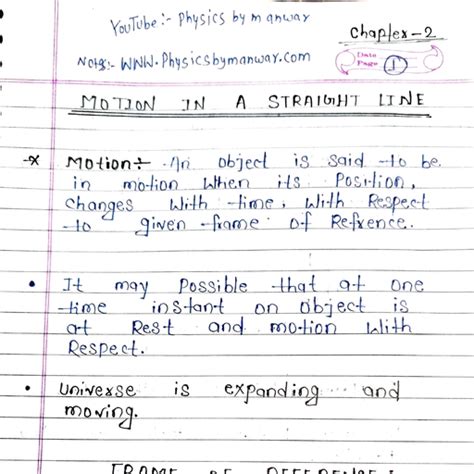 YouTube:- Physics by manwar
Chapter-2
Notes:- WWW.Physicsbymanwar.com
Date
Page 1
MOTION IN A STRAIGHT LINE
Motion÷ An object is said to be
in motion when its Position,
changes with time, with Respect
to given frame of Refrence.
• It may Possible that at one
time instant on object is
at Rest and motion with
Respect.
• Universe is expanding and
moving.
FRAME OF REFERENCE: